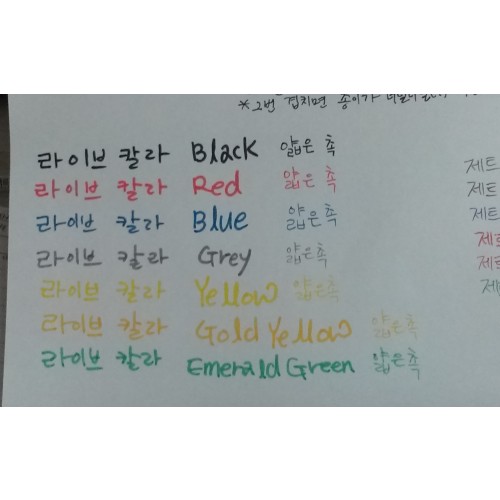 *2번 겹치면 종이가
라이브 칼라 Black 얇은 촉
라이브 칼라 Red 얇은 촉
라이브 칼라 Blue 얇은촉
라이브 칼라 Grey 얇은촉
라이브 칼라 Yellow 얇은촉
라이브 칼라 Gold Yellow 얇은촉
라이브 칼라 Emerald Green 얇은촉
제트
제트
제트
제트
제트